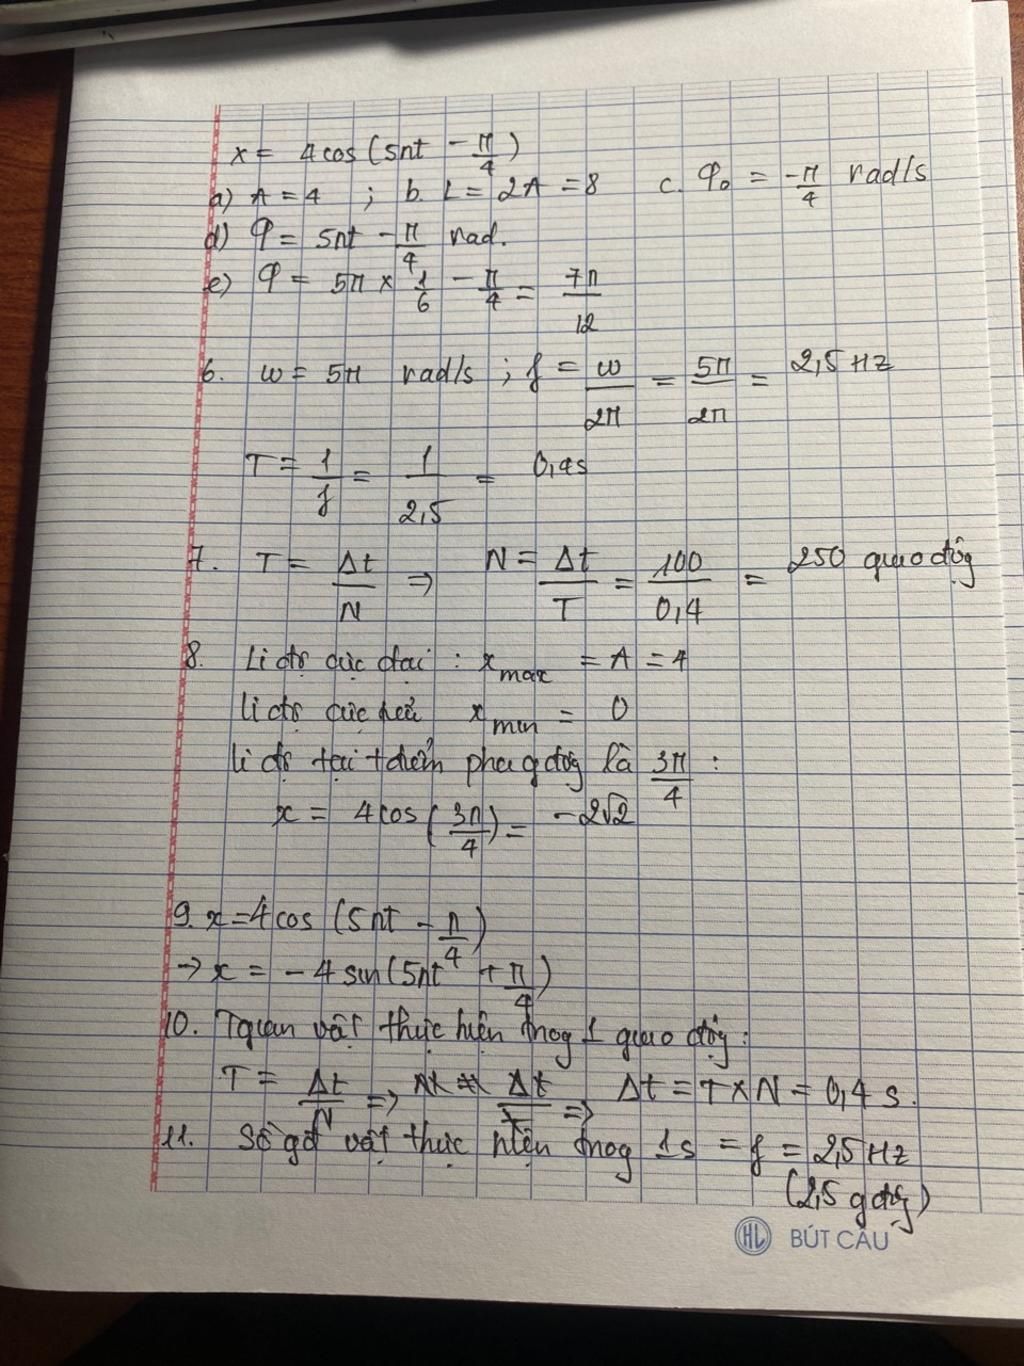 x = 4cos(5πt - π/4)
a) A = 4 ; b. L = 2A = 8 c. φ₀ = -π/4 rad/s
d) φ = 5πt - π/4 rad.
e) φ = 5π × 1/6 - π/4 = 7π/12
6. ω = 5π rad/s ; f = ω/2π = 5π/2π = 2,5 Hz
T = 1/f = 1/2,5 = 0,4s
7. T = Δt/N ⇒ N = Δt/T = 100/0,4 = 250 giao động
8. Li độ cực đại : x max = A = 4
li độ cực tiểu x min = 0
li độ tại thời điểm pha gđộng là 3π/4 :
x = 4cos(3π/4) = -2√2
9. x = 4cos (5πt - π/4)
→ x = - 4 sin(5πt + π/4)
10. Tgian vật thực hiện trog 1 giao động :
T = Δt/N ⇒ Δt = T × N = 0,4 s.
11. Số gđ vật thực hiện trog 1s = f = 2,5 Hz
(2,5 g động)
HL BÚT CÂU